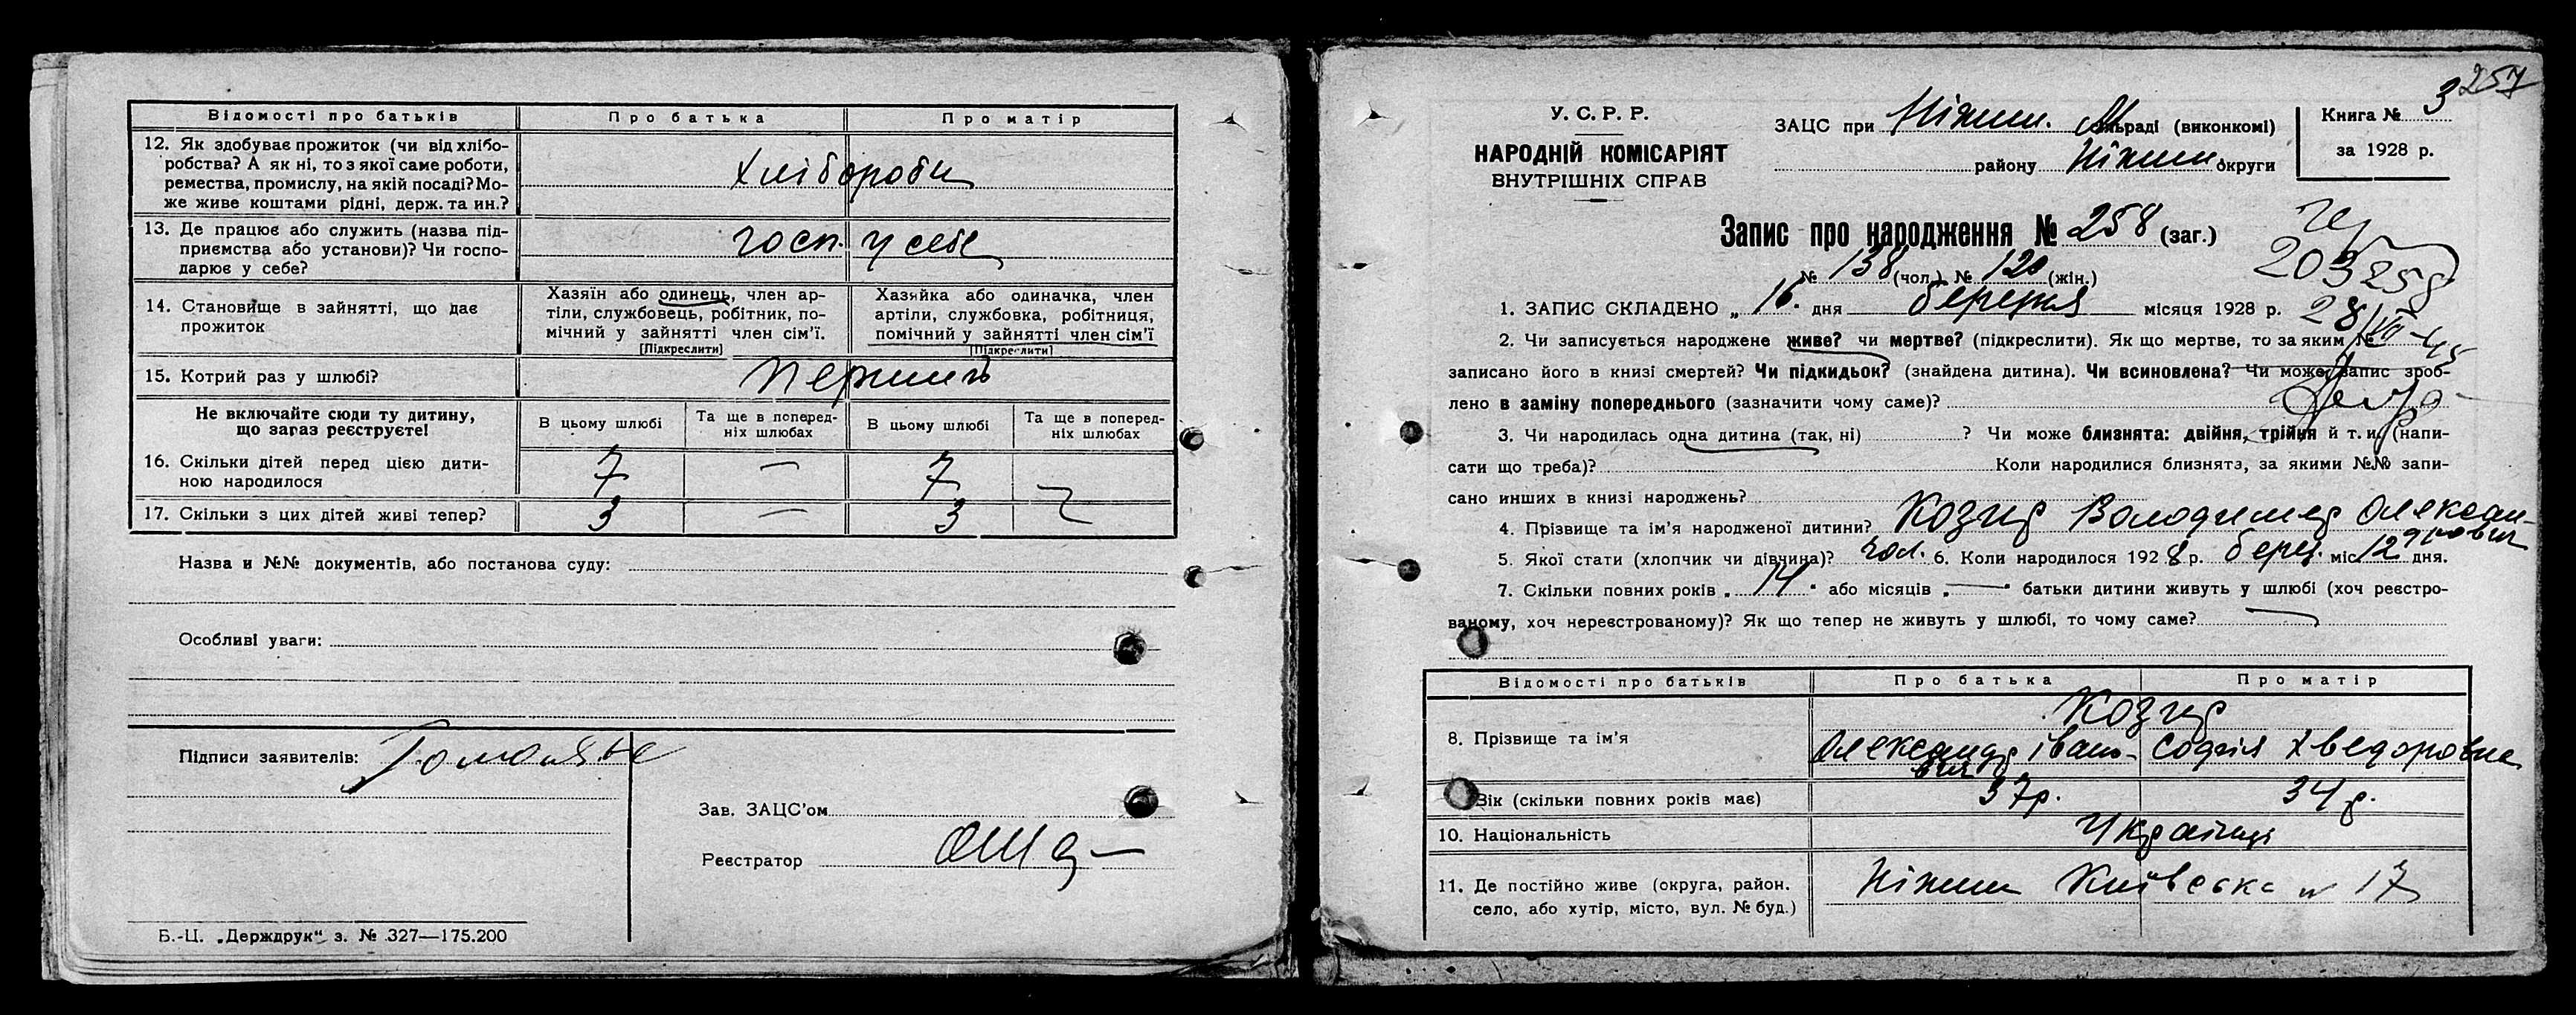 Відомості про батьків Про батька Про матір
12. Як здобуває прожиток (чи від хлібо-
робства? А як ні, то з якої саме роботи,
ремества, промислу, на якій посаді? Мо-
же живе коштами рідні, держ. та ин.?
хлібороби
13. Де працює або служить (назва під-
приємства або установи)? Чи госпо-
дарює у себе?
госп. у себе
14. Становище в зайнятті, що дає
прожиток
Хазяїн або одинець, член ар-
тіли, службовець, робітник, по-
мічний у зайнятті член сім’ї.
[Підкреслити]
Хазяйка або одиначка, член
артіли, службовка, робітниця,
помічний у зайнятті член сім’ї
[Підкреслити]
15. Котрий раз у шлюбі?
Не включайте сюди ту дитину,
що зараз реєструєте!
В цьому шлюбі
Та ще в поперед-
ніх шлюбах
В цьому шлюбі
Та ще в поперед-
ніх шлюбах
16. Скільки дітей перед цією дити-
ною народилося
7 — 7 —
17. Скільки з цих дітей живі тепер? 3 — 3 —
Назва и №№ документів, або постанова суду:
Особливі уваги:
Підписи заявителів:
Зав. ЗАЦС’ом
Реєстратор
Б.-Ц. „Держдрук“ з. № 327—175.200
257
У. С. Р. Р.
НАРОДНІЙ КОМІСАРІЯТ
ВНУТРІШНІХ СПРАВ
ЗАЦС при Ніжин. М раді (виконкомі)
району Ніжин. округи
Книга № 3
за 1928 р.
Запис про народження № 258 (заг.)
№ 138 (чол.) № 120 (жін.)
203258
28/VII-45
1. ЗАПИС СКЛАДЕНО „ 16. дня березня місяця 1928 р.
2. Чи записується народжене живе? чи мертве? (підкреслити). Як що мертве, то за яким №
записано його в книзі смертей? Чи підкидьок? (знайдена дитина). Чи всиновлена? Чи може запис зроб-
лено в заміну попереднього (зазначити чому саме)?
3. Чи народилась одна дитина (так, ні) ? Чи може близнята: двійня, трійня й т. и. (напи-
сати що треба)? Коли народилися близнята, за якими №№ запи-
сано инших в книзі народжень?
4. Прізвище та ім’я народженої дитини? Козир Володимир Олексан-
дрович
5. Якої стати (хлопчик чи дівчина)? чол. 6. Коли народилося 1928 р. берез. міс. 12 дня.
7. Скільки повних років „ 14 “ або місяців „ — “ батьки дитини живуть у шлюбі (хоч реєстро-
ваному, хоч нереєстрованому)? Як що тепер не живуть у шлюбі, то чому саме? —
Відомості про батьків Про батька Про матір
8. Прізвище та ім’я
Козир
Олександр Івано-
вич
Софія Хведоровна
Вік (скільки повних років має) 37 р. 34 р.
10. Національність Українці
11. Де постійно живе (округа, район.
село, або хутір, місто, вул. № буд.)
Ніжин Київська № 17